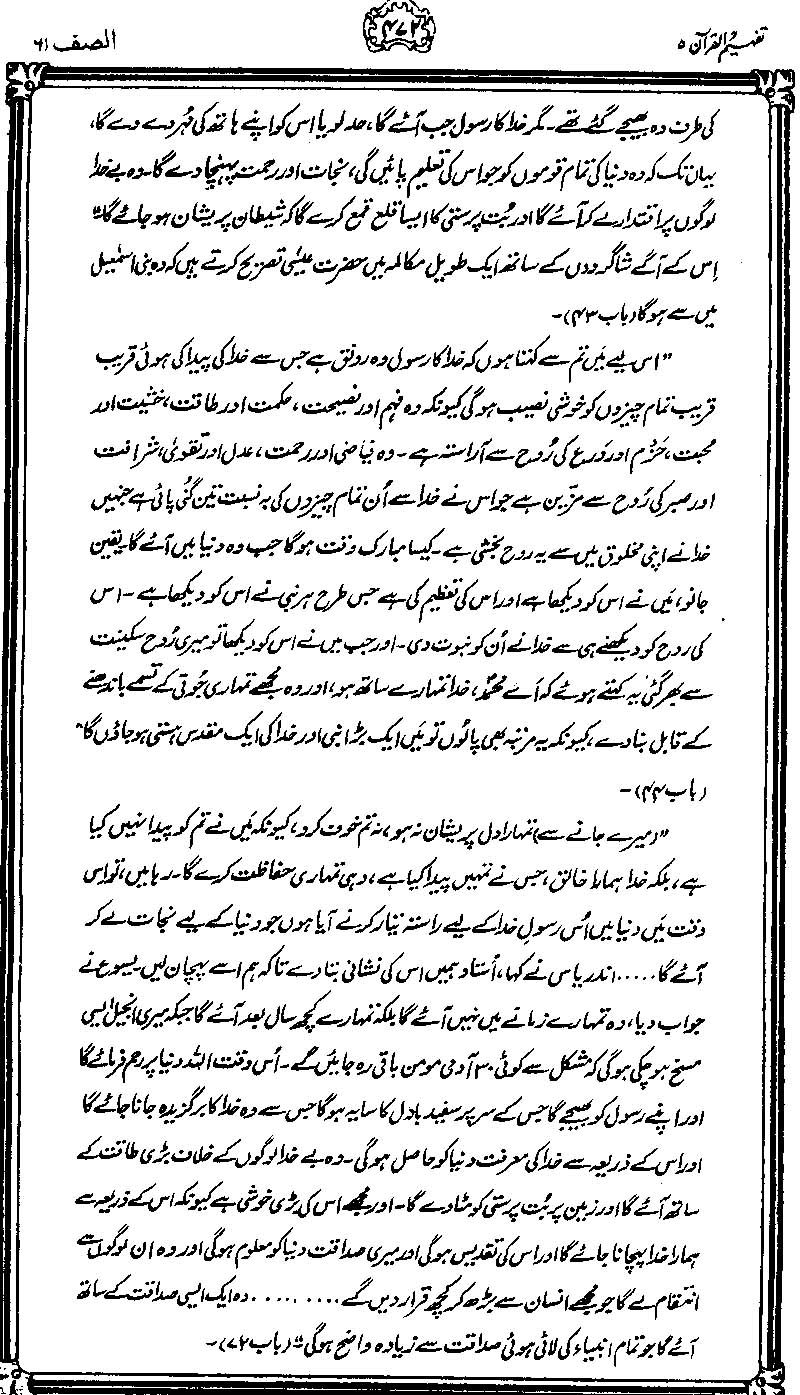 تفہیم القرآن ۵
۴۷۲
الصف ۶۱
کی طرف وہ بھیجے گئے تھے۔ مگر خدا کا رسول جب آئے گا، خدا گویا اس کو اپنے ہاتھ کی مُہر دے دے گا،
یہاں تک کہ وہ دنیا کی تمام قوموں کو جو اس کی تعلیم پائیں گی، نجات اور رحمت پہنچا دے گا۔ وہ بے خدا
لوگوں پر اقتدار لے کر آئے گا اور بُت پرستی کا ایسا قلع قمع کرے گا کہ شیطان پریشان ہو جائے گا"
اِس کے آگے شاگردوں کے ساتھ ایک طویل مکالمہ میں حضرت عیسٰی تصریح کرتے ہیں کہ وہ بنی اسمٰعیل
میں سے ہوگا (باب ۴۳)۔
"اس لیے مَیں تم سے کہتا ہوں کہ خدا کا رسول وہ رونق ہے جس سے خدا کی پیدا کی ہوئی قریب
قریب تمام چیزوں کو خوشی نصیب ہوگی کیونکہ وہ فہم اور نصیحت، حکمت اور طاقت، خشیت اور
محبت، حَزْم اور وَرَع کی رُوح سے آراستہ ہے۔ وہ فیاضی اور رحمت، عدل اور تقویٰ، شرافت
اور صبر کی رُوح سے مزّین ہے جو اس نے خدا سے اُن تمام چیزوں کی بہ نسبت تین گُنی پائی ہے جنہیں
خدا نے اپنی مخلوق میں سے یہ روح بخشی ہے۔ کیسا مبارک وقت ہوگا جب وہ دنیا میں آئے گا یقین
جانو، مَیں نے اس کو دیکھا ہے اور اس کی تعظیم کی ہے جس طرح ہر نبی نے اس کو دیکھا ہے۔ اس
کی روح کو دیکھنے ہی سے خدا نے اُن کو نبوت دی۔ اور جب میں نے اس کو دیکھا تو میری رُوح سکینت
سے بھر گئی یہ کہتے ہوئے کہ اَے محمدؐ، خدا تمہارے ساتھ ہو، اور وہ مجھے تمہاری جُوتی کے تسمے باندھنے
کے قابل بنا دے، کیونکہ یہ مرتبہ بھی پاؤں تو مَیں ایک بڑا نبی اور خدا کی ایک مقدس ہستی ہو جاؤں گا"
(باب ۴۴)۔
"(میرے جانے سے) تمہارا دل پریشان نہ ہو، نہ تم خوف کرو، کیونکہ مَیں نے تم کو پیدا نہیں کیا
ہے، بلکہ خدا ہمارا خالق، جس نے تمہیں پیدا کیا ہے، وہی تمہاری حفاظت کرے گا۔ رہا میں، تو اِس
وقت مَیں دنیا میں اُس رسولِ خدا کے لیے راستہ تیار کرنے آیا ہوں جو دنیا کے لیے نجات لے کر
آئے گا..... اندریاس نے کہا، اُستاد ہمیں اس کی نشانی بتا دے تاکہ ہم اسے پہچان لیں۔ یسوع نے
جواب دیا، وہ تمہارے زمانے میں نہیں آئے گا بلکہ تمہارے کچھ سال بعد آئے گا جبکہ میری انجیل ایسی
مسخ ہو چکی ہوگی کہ مشکل سے کوئی ۳۰ آدمی مومن باقی رہ جائیں گے۔ اُس وقت اللہ دنیا پر رحم فرمائے گا
اور اپنے رسول کو بھیجے گا جس کے سر پر سفید بادل کا سایہ ہوگا جس سے وہ خدا کا برگزیدہ جانا جائے گا
اور اس کے ذریعہ سے خدا کی معرفت دنیا کو حاصل ہوگی۔ وہ بے خدا لوگوں کے خلاف بڑی طاقت کے
ساتھ آئے گا اور زمین پر بُت پرستی کو مٹا دے گا۔ اور مجھے اس کی بڑی خوشی ہے کیونکہ اس کے ذریعہ سے
ہمارا خدا پہچانا جائے گا اور اس کی تقدیس ہوگی اور میری صداقت دنیا کو معلوم ہوگی اور وہ ان لوگوں سے
انتقام لے گا جو مجھے انسان سے بڑھ کر کچھ قرار دیں گے.......... وہ ایک ایسی صداقت کے ساتھ
آئے گا جو تمام انبیاء کی لائی ہوئی صداقت سے زیادہ واضح ہوگی" (باب ۷۲)۔